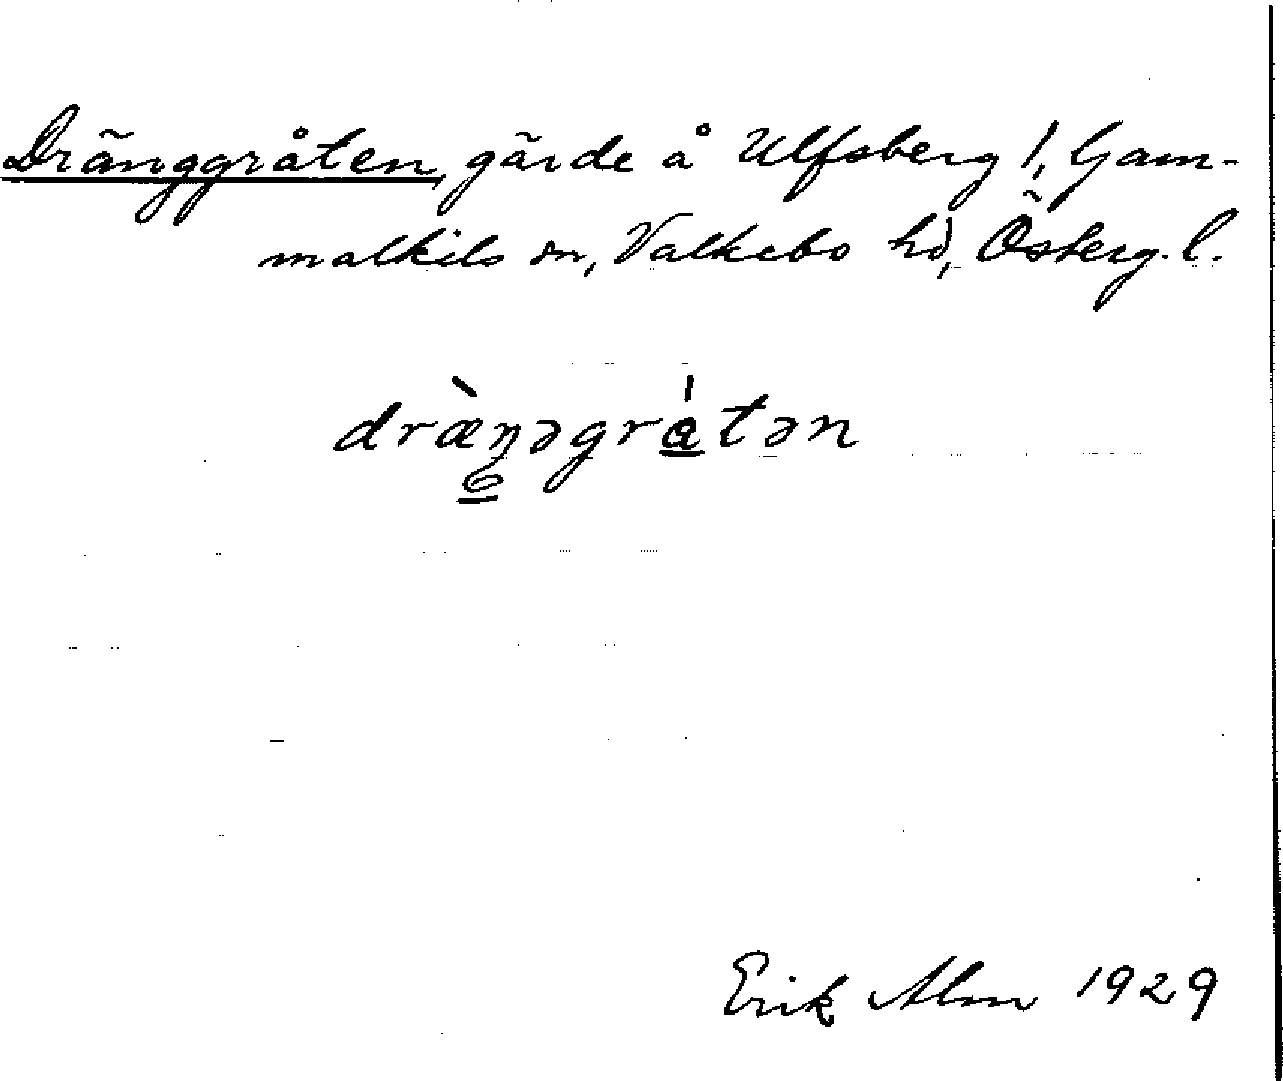 Dränggråten, gärde å Ulfsberg 1, Gam-
malkils sn, Valkebo hd, Österg. l.
dræ̀ŋəgrátən
Erik Alm 1929